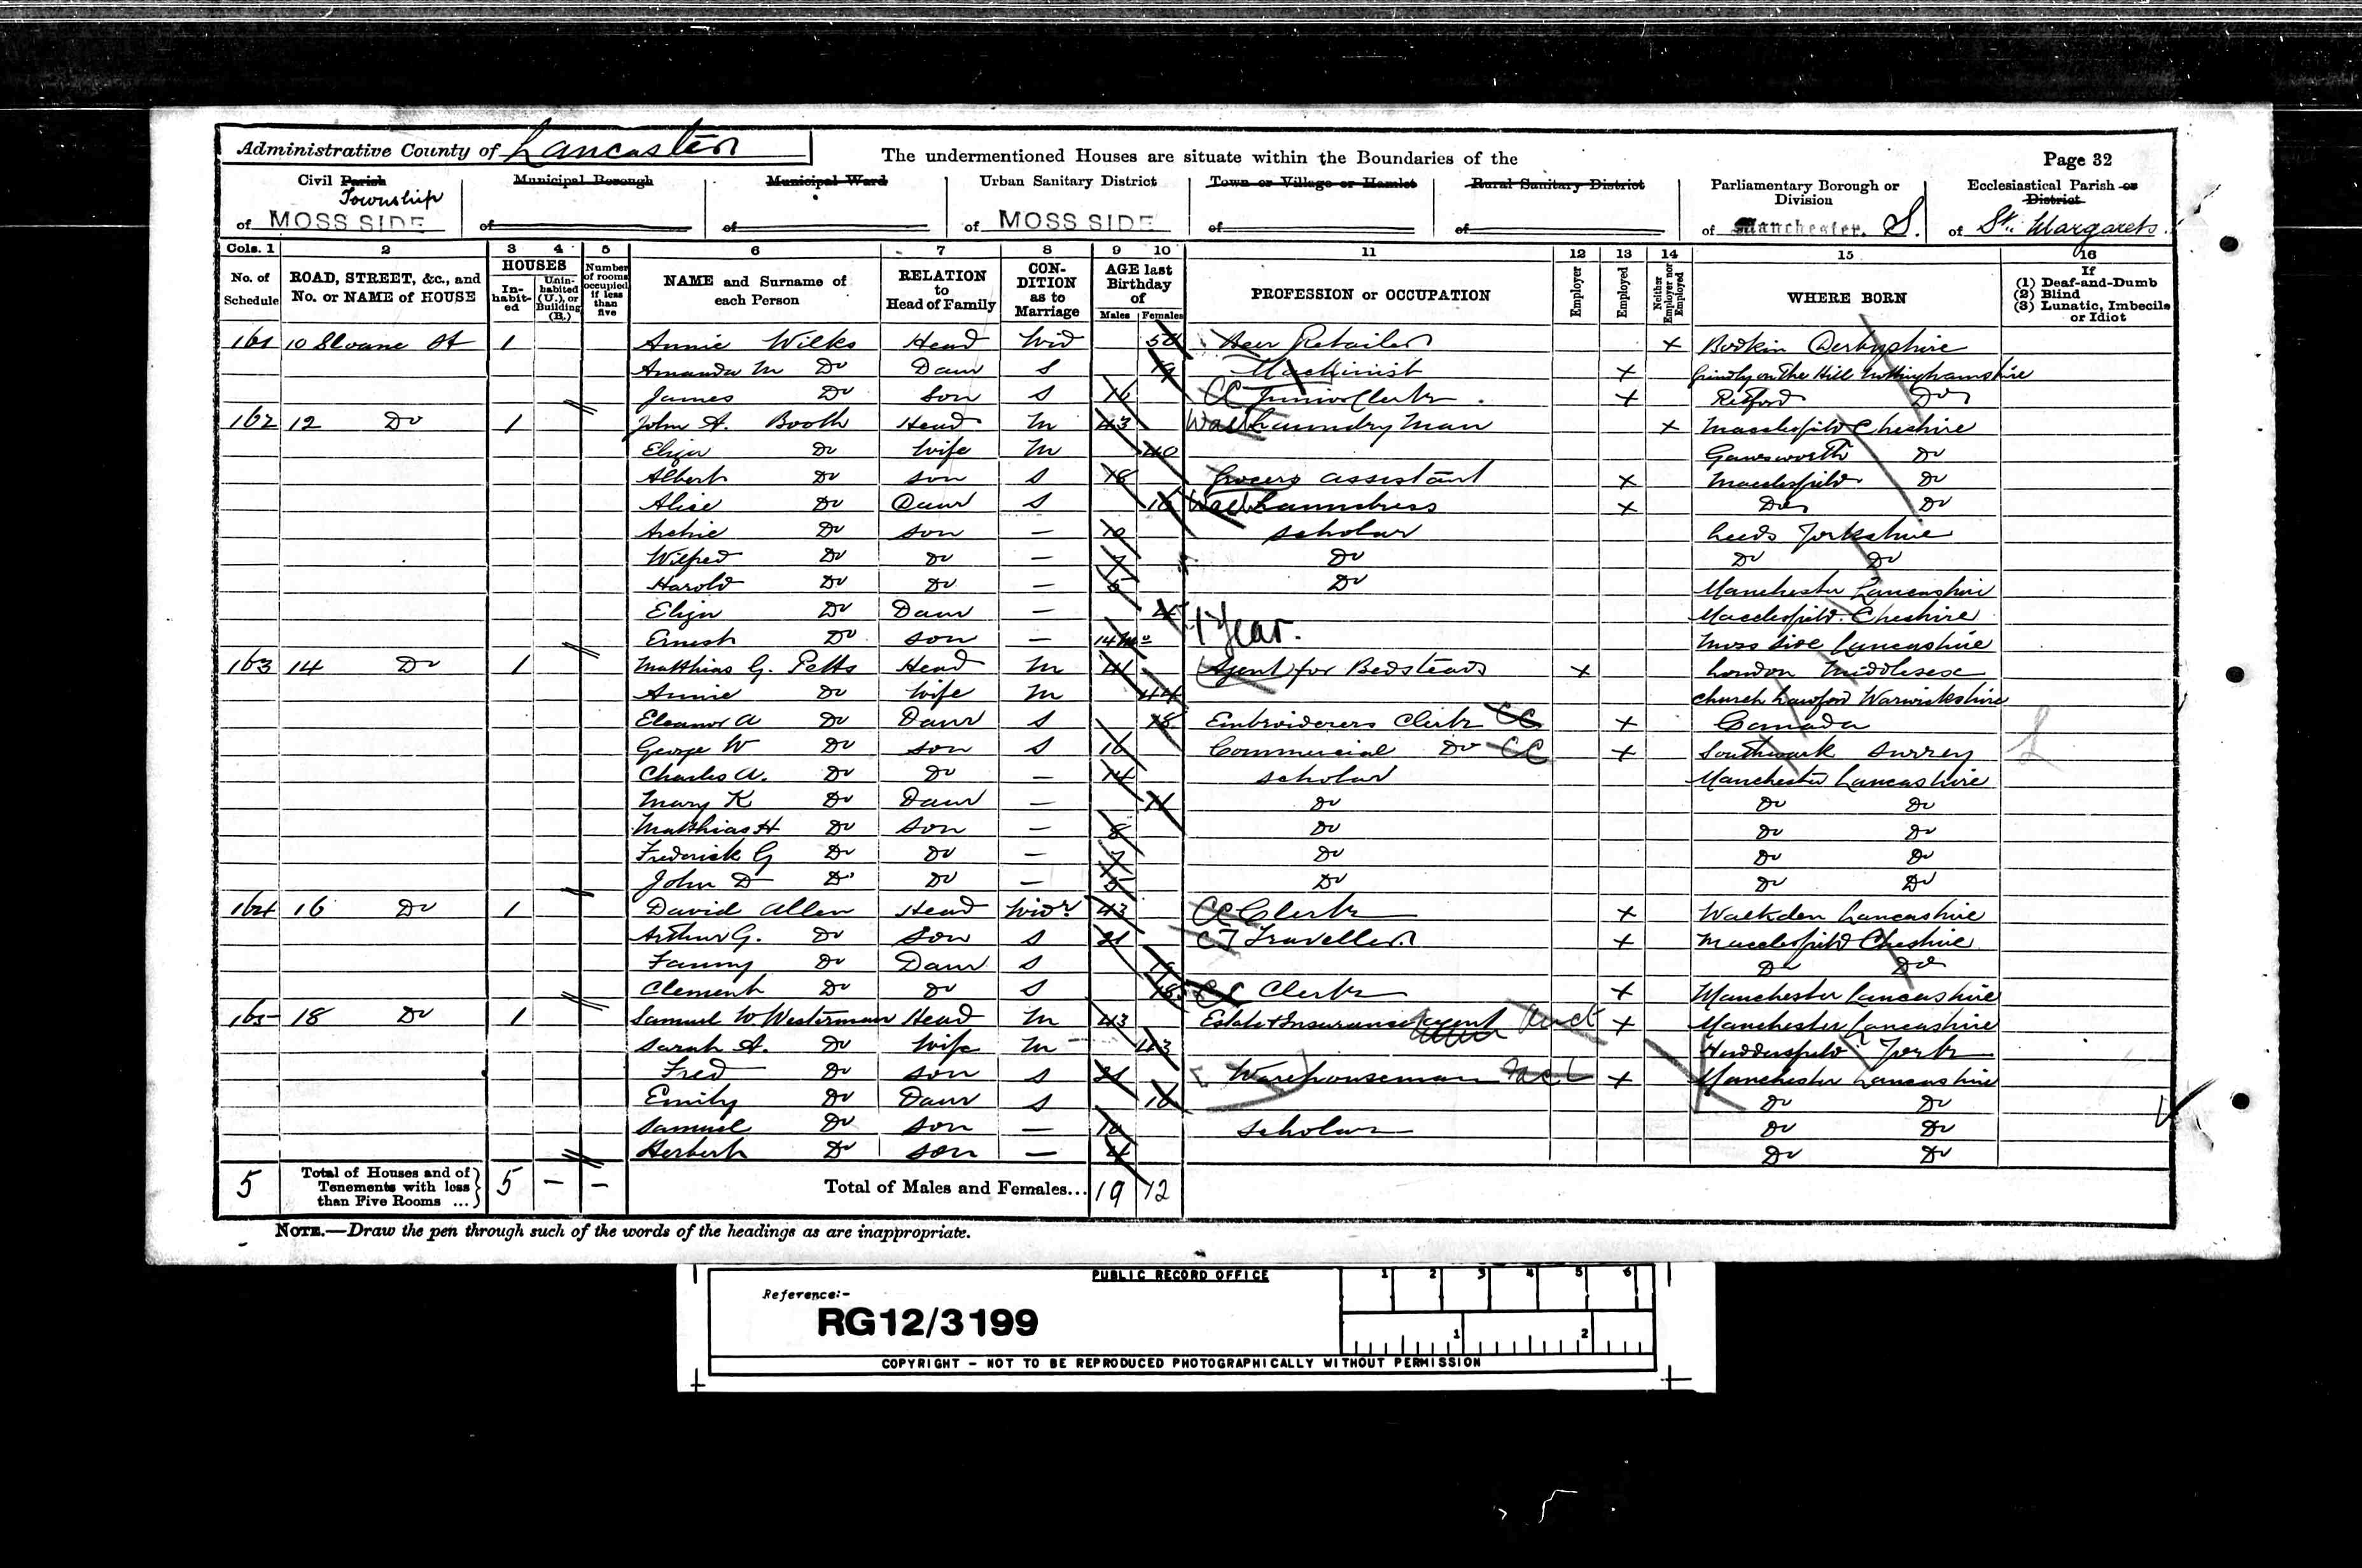 Administrative County of Lancaster The undermentioned Houses are situate within the Boundaries of the Page 32
Civil Parish Township of MOSS SIDE Municipal Borough of Municipal Ward of Urban Sanitary District of MOSS SIDE Town or Village or Hamlet of Rural Sanitary District of Parliamentary Borough or Division of Manchester. S. Ecclesiastical Parish or District of St. Margarets.
Cols. 1 2 3 4 5 6 7 8 9 10 11 12 13 14 15 16
No. of Schedule ROAD, STREET, &c., and No. or NAME of HOUSE HOUSES In-habit-ed Unin-habited (U.), or Building (B.) Number of rooms occupied if less than five NAME and Surname of each Person RELATION to Head of Family CON-DITION as to Marriage AGE last Birthday of Males Females PROFESSION or OCCUPATION Employer Employed Neither Employer nor Employed WHERE BORN If (1) Deaf-and-Dumb (2) Blind (3) Lunatic, Imbecile or Idiot
161 10 Sloane St 1 Annie Wilks Head Wid Beer Retailer x Derbyshire
Amanda M Do Daur S 19 Machinist x on the Hill Nottinghamshire
James Do Son S 16 CC Junior Clerk x Retford Do
162 12 Do 1 John A. Booth Head M 43 Wash Laundry Man x Macclesfield Cheshire
Eliza Do Wife M 40 Gawsworth Do
Albert Do Son S 18 Grocers assistant x Macclesfield Do
Alice Do Daur S 16 Wash Laundress x Do Do
Archie Do Son — 10 Scholar Leeds Yorkshire
Wilfred Do Do — 7 Do Do Do
Harold Do Do — 5 Do Manchester Lancashire
Eliza Do Daur — Macclesfield Cheshire
Ernest Do Son — 14 Mo 1 Year. Moss Side Lancashire
163 14 Do 1 Matthias G. Petts Head M 41 Agent for Bedsteads x London Middlesex
Annie Do Wife M 44 Church Lawford Warwickshire
Eleanor A Do Daur S 18 Embroiderers Clerk CC x Canada
George W Do Son S 16 Commercial Do CC x Southwark Surrey
Charles A. Do Do — 14 Scholar Manchester Lancashire
Mary K Do Daur — 11 Do Do Do
Matthias H Do Son — 8 Do Do Do
Frederick G Do Do — 7 Do Do Do
John D Do Do — 5 Do Do Do
164 16 Do 1 David Allen Head Widr 43 CC Clerk x Walkden Lancashire
Arthur G. Do Son S 21 CT Traveller x Macclesfield Cheshire
Fanny Do Daur S Do Do
Clement Do Do S 18 CC Clerk x Manchester Lancashire
165 18 Do 1 Samuel W. Westerman Head M 43 Estate & Insurance Agent x Manchester Lancashire
Sarah A. Do Wife M 43 Huddersfield York
Fred Do Son S 21 Warehouseman x Manchester Lancashire
Emily Do Daur S 16 Do Do
Samuel Do Son — 10 Scholar Do Do
Herbert Do Son — 4 Do Do
5 Total of Houses and of Tenements with less than Five Rooms ... 5 – – Total of Males and Females... 19 12
NOTE.—Draw the pen through such of the words of the headings as are inappropriate.
PUBLIC RECORD OFFICE 1 2 3 4 5 6
Reference:-
RG12/3199
1 2
COPYRIGHT - NOT TO BE REPRODUCED PHOTOGRAPHICALLY WITHOUT PERMISSION